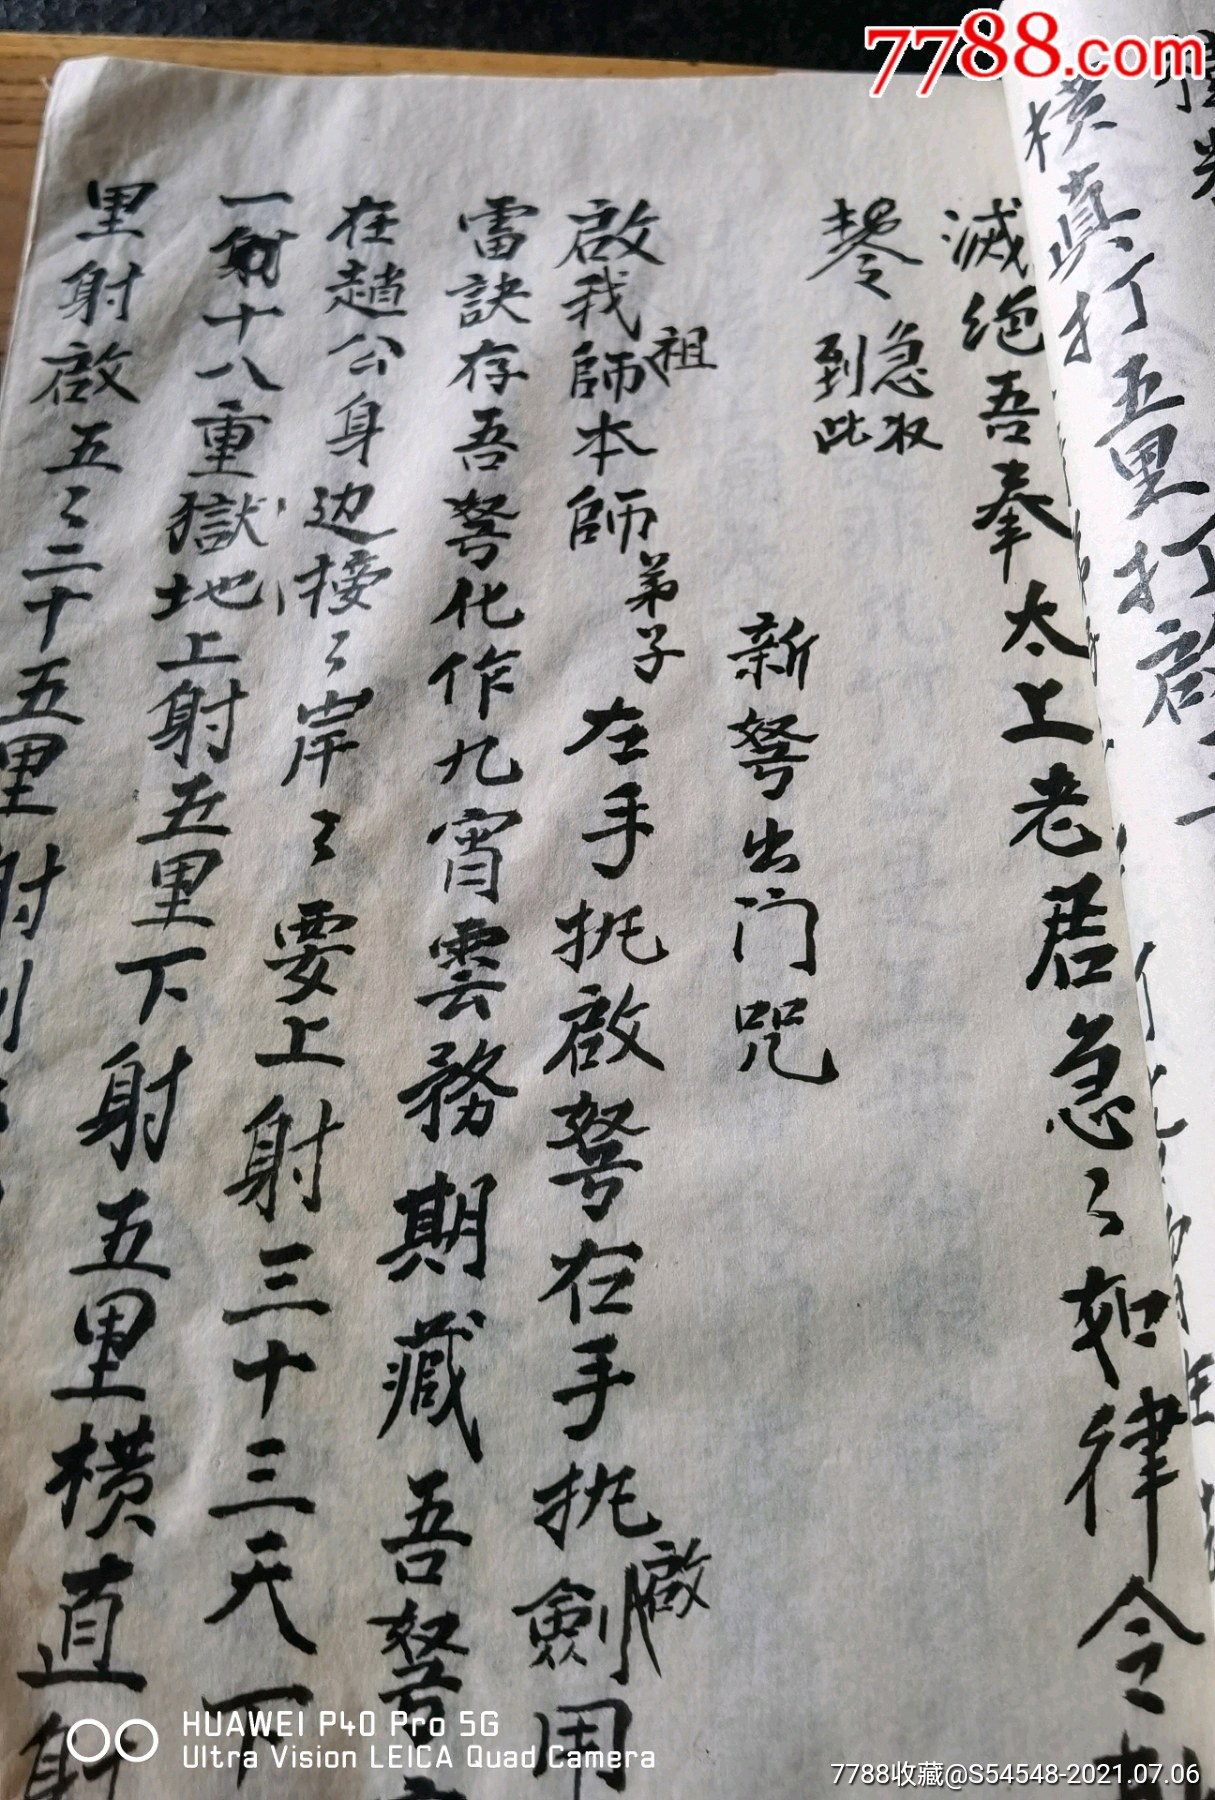 7788.com
横真打五里打啟
滅绝吾奉太上老君急〻如律令
急收
到此
新弩出门咒
啟我祖師本師弟子左手執啟弩右手執啟劍用
雷訣存吾弩化作九宵雲務期藏吾弩
在趙公身边接〻岸〻要上射三十三天下
一射十八重獄地上射五里下射五里横直射
里射啟五〻二十五里射
HUAWEI P40 Pro 5G
Ultra Vision LEICA Quad Camera
7788收藏@S54548-2021.07.06